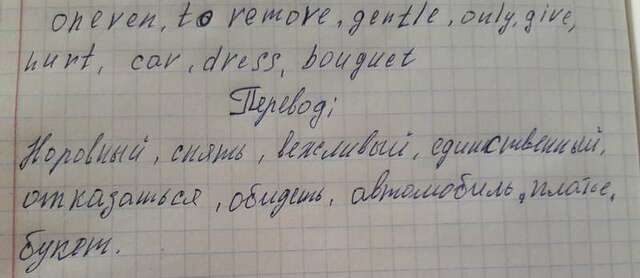 oneven, to remove, gentle, only, give,
hurt, car, dress, bouquet
Перевод:
Норовный, снять, вежливый, единственный,
отказаться, обидеть, автомобиль, платье,
букет.